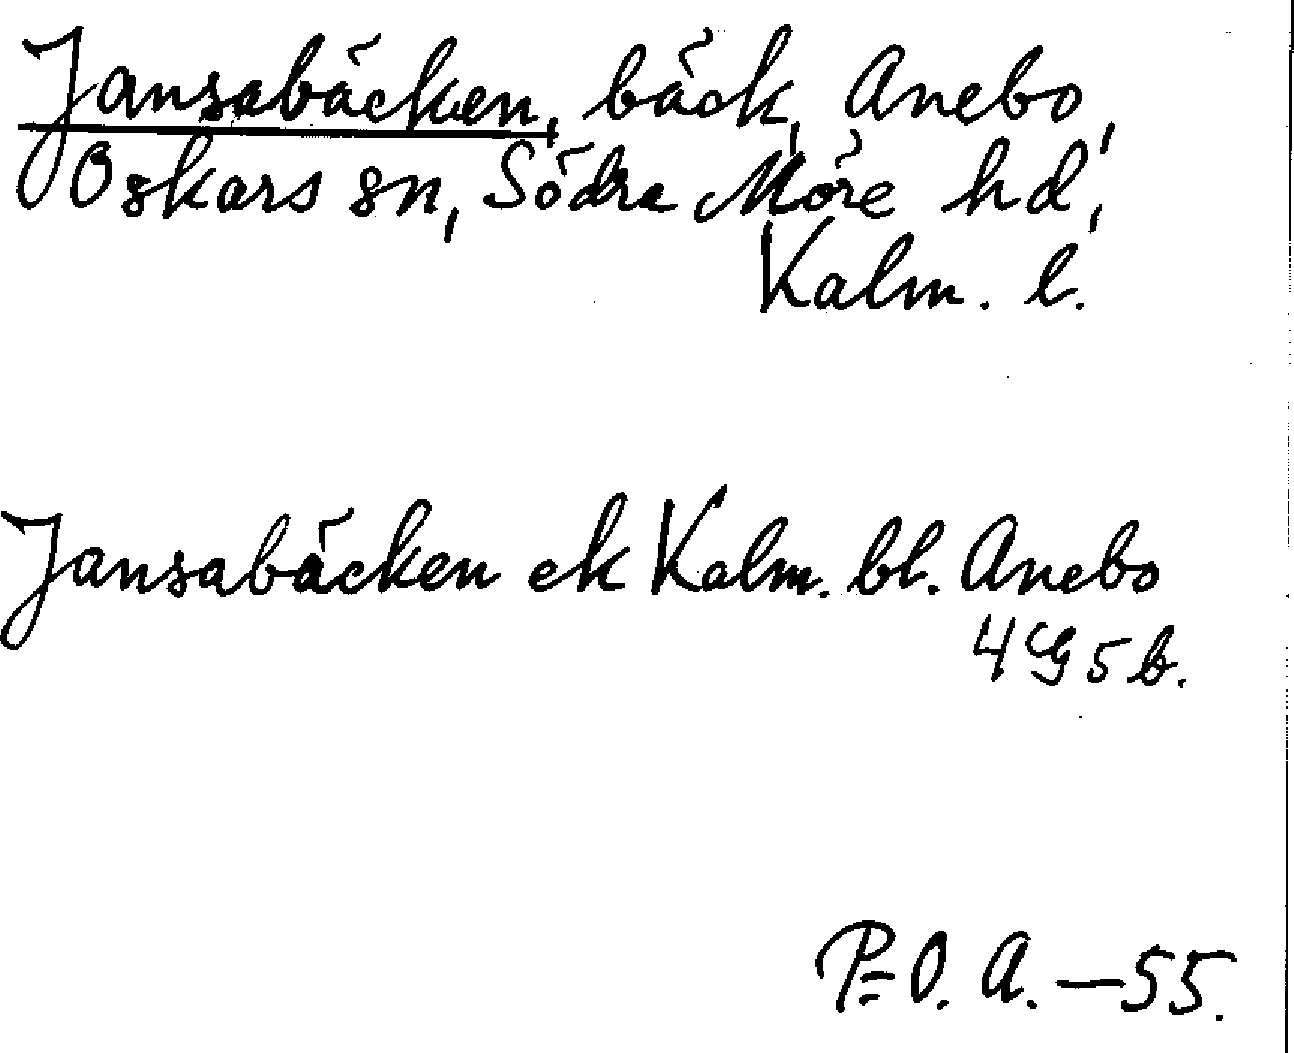 Jansabäcken, bäck, Anebo,
Oskars sn, Södra Möre hd,
Kalm. l.
Jansabäcken ek Kalm. bl. Anebo
4G5b.
P-O. A. — 55.